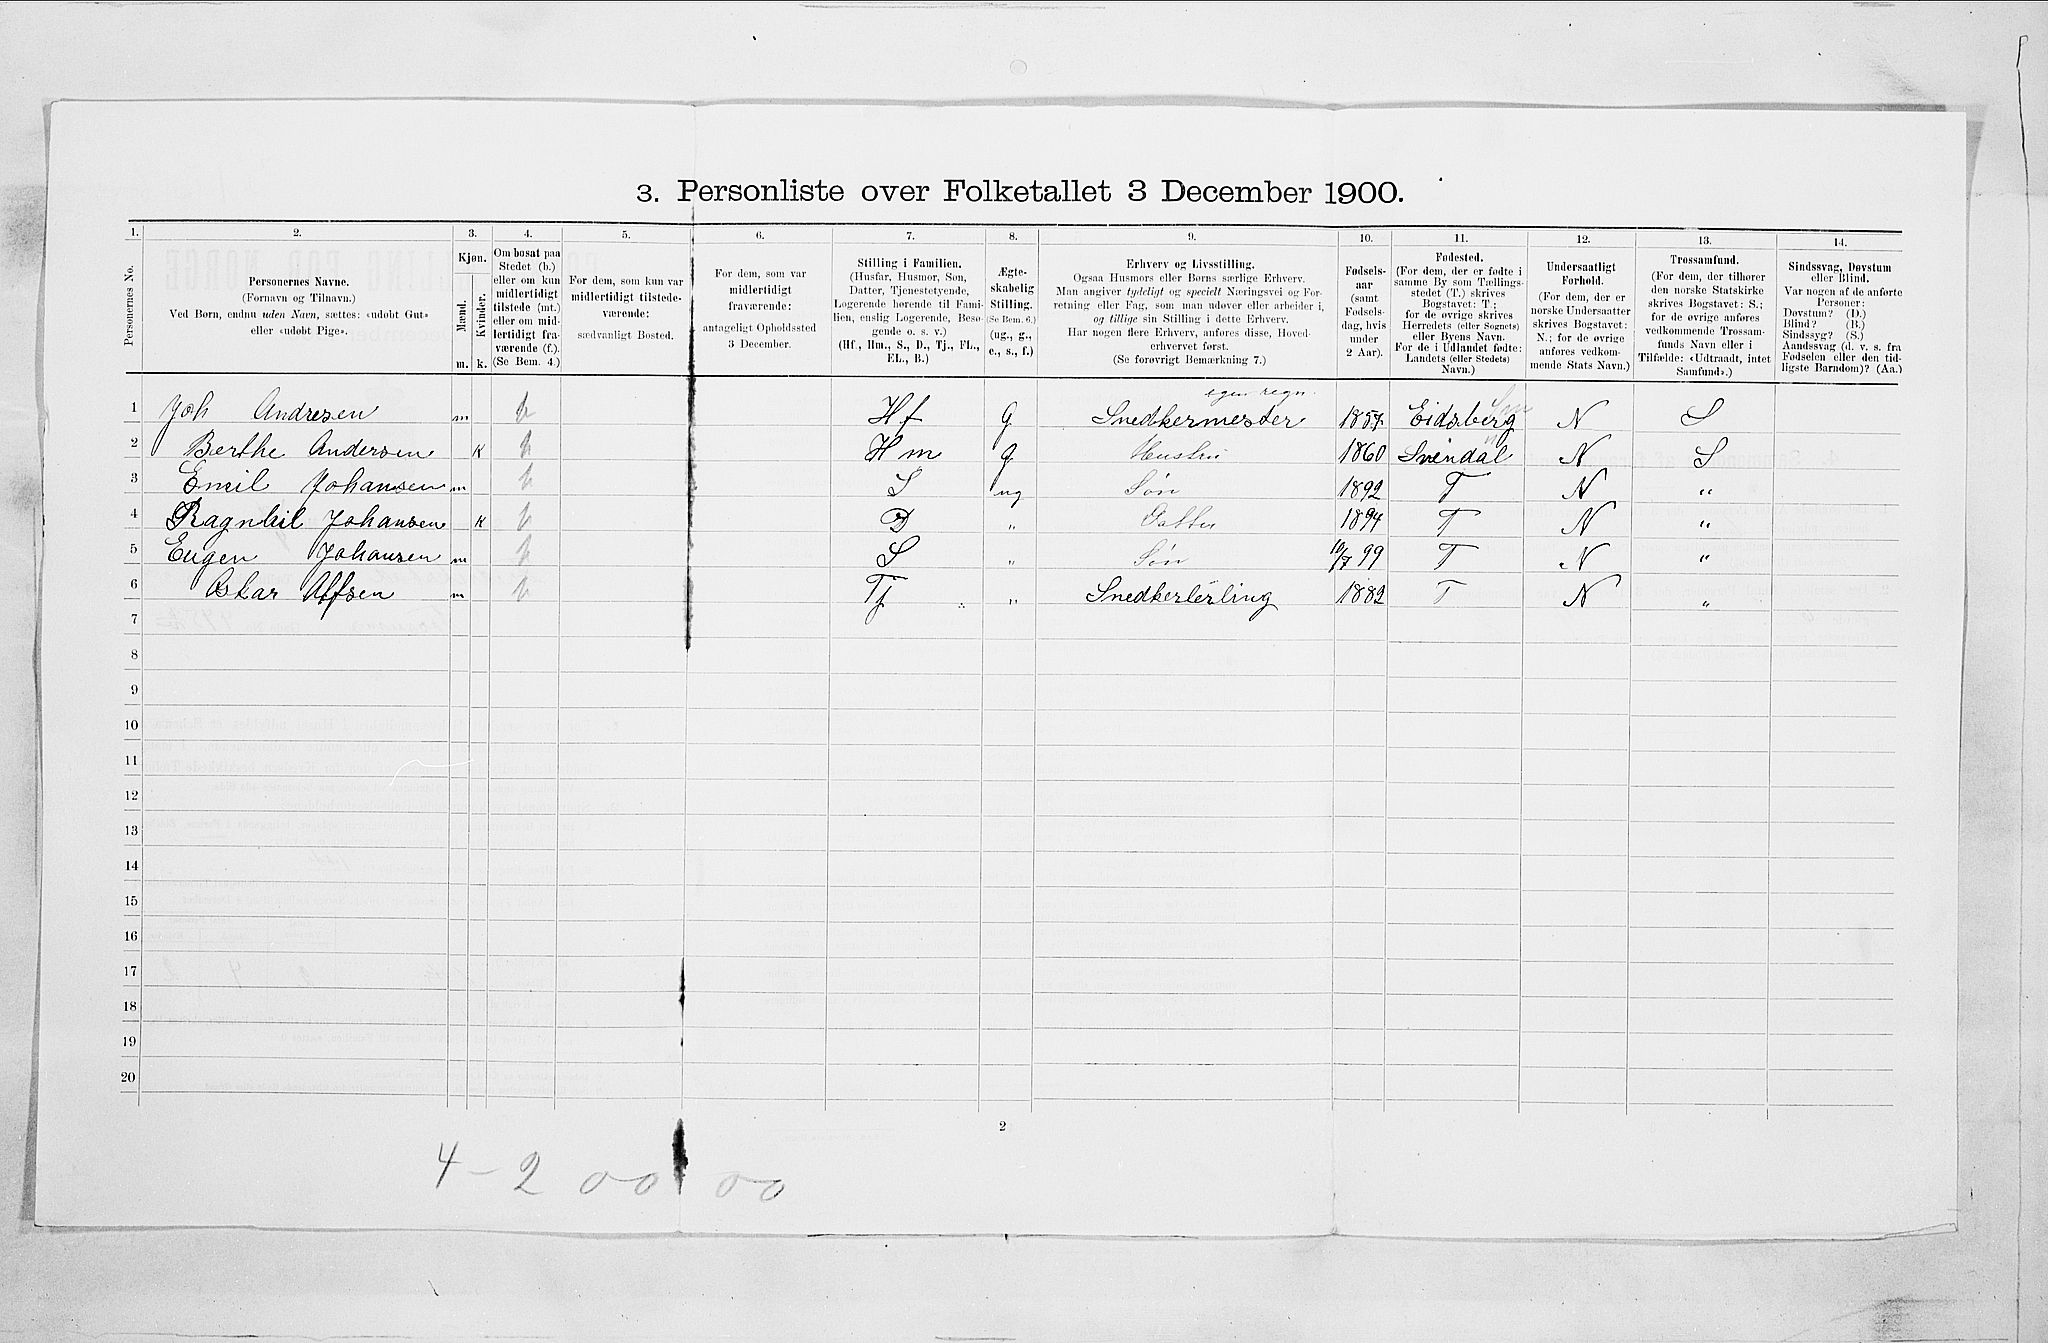 3. Personliste over Folketallet 3 December 1900.
1. 2. 3. 4. 5. 6. 7. 8. 9. 10. 11. 12. 13. 14.
Personernes No.
Personernes Navne.
(Fornavn og Tilnavn.)
Ved Børn, endnu uden Navn, sættes: «udøbt Gut»
eller «udøbt Pige».
Kjøn.
Mænd.
Kvinder.
m. k.
Om bosat paa
Stedet (b.)
eller om kun
midlertidigt
tilstede (mt.)
eller om mid-
lertidigt fra-
værende (f.).
(Se Bem. 4.)
For dem, som kun var
midlertidigt tilstede-
værende:
sædvanligt Bosted.
For dem, som var
midlertidigt
fraværende:
antageligt Opholdssted
3 December.
Stilling i Familien.
(Husfar, Husmor, Søn,
Datter, Tjenestetyende,
Logerende hørende til Fami-
lien, enslig Logerende, Besø-
gende o. s. v.)
(Hf., Hm., S., D., Tj., FL.,
EL., B.)
Ægte-
skabelig
Stilling.
(Se Bem. 6.)
(ug., g.,
e., s., f.)
Erhverv og Livsstilling.
Ogsaa Husmors eller Børns særlige Erhverv.
Man angiver tydeligt og specielt Næringsvei og For-
retning eller Fag, som man udøver eller arbeider i,
og tillige sin Stilling i dette Erhverv.
Har nogen flere Erhverv, anføres disse, Hoved-
erhvervet først.
(Se forøvrigt Bemærkning 7.)
Fødsels-
aar
(samt
Fødsels-
dag, hvis
under
2 Aar).
Fødested.
(For dem, der er fødte i
samme By som Tællings-
stedet (T.) skrives
Bogstavet: T.;
for de øvrige skrives
Herredets (eller Sognets)
eller Byens Navn.
For de i Udlandet fødte:
Landets (eller Stedets)
Navn.)
Undersaatligt
Forhold.
(For dem, der er
norske Undersaatter
skrives Bogstavet:
N.; for de øvrige
anføres vedkom-
mende Stats Navn.)
Trossamfund.
(For dem, der tilhører
den norske Statskirke
skrives Bogstavet: S.;
for de øvrige anføres
vedkommende Trossam-
funds Navn eller i
Tilfælde: «Udtraadt, intet
Samfund».)
Sindssvag, Døvstum
eller Blind.
Var nogen af de anførte
Personer:
Døvstum? (D.)
Blind? (B.)
Sindssyg? (S.)
Aandssvag (d. v. s. fra
Fødselen eller den tid-
ligste Barndom)? (Aa.)
egen regn.
1 Joh Andresen m b Hf g Snedkermester 1857 Eidsberg N S
2 Berthe Andersen k b Hm g Hustru 1860 Svindal N S
3 Emil Johansen m b S ug Søn 1892 T N "
4 Ragnhil Johansen k b D " Datter 1894 T N "
5 Eugen Johansen m b S " Søn 10/7 99 T N "
6 Oskar Alfsen m b Tj " Snedkerlerling 1882 T N "
7
8
9
10
11
12
13
14
15
16
17
18
19
20
2
4 – 2 00 00